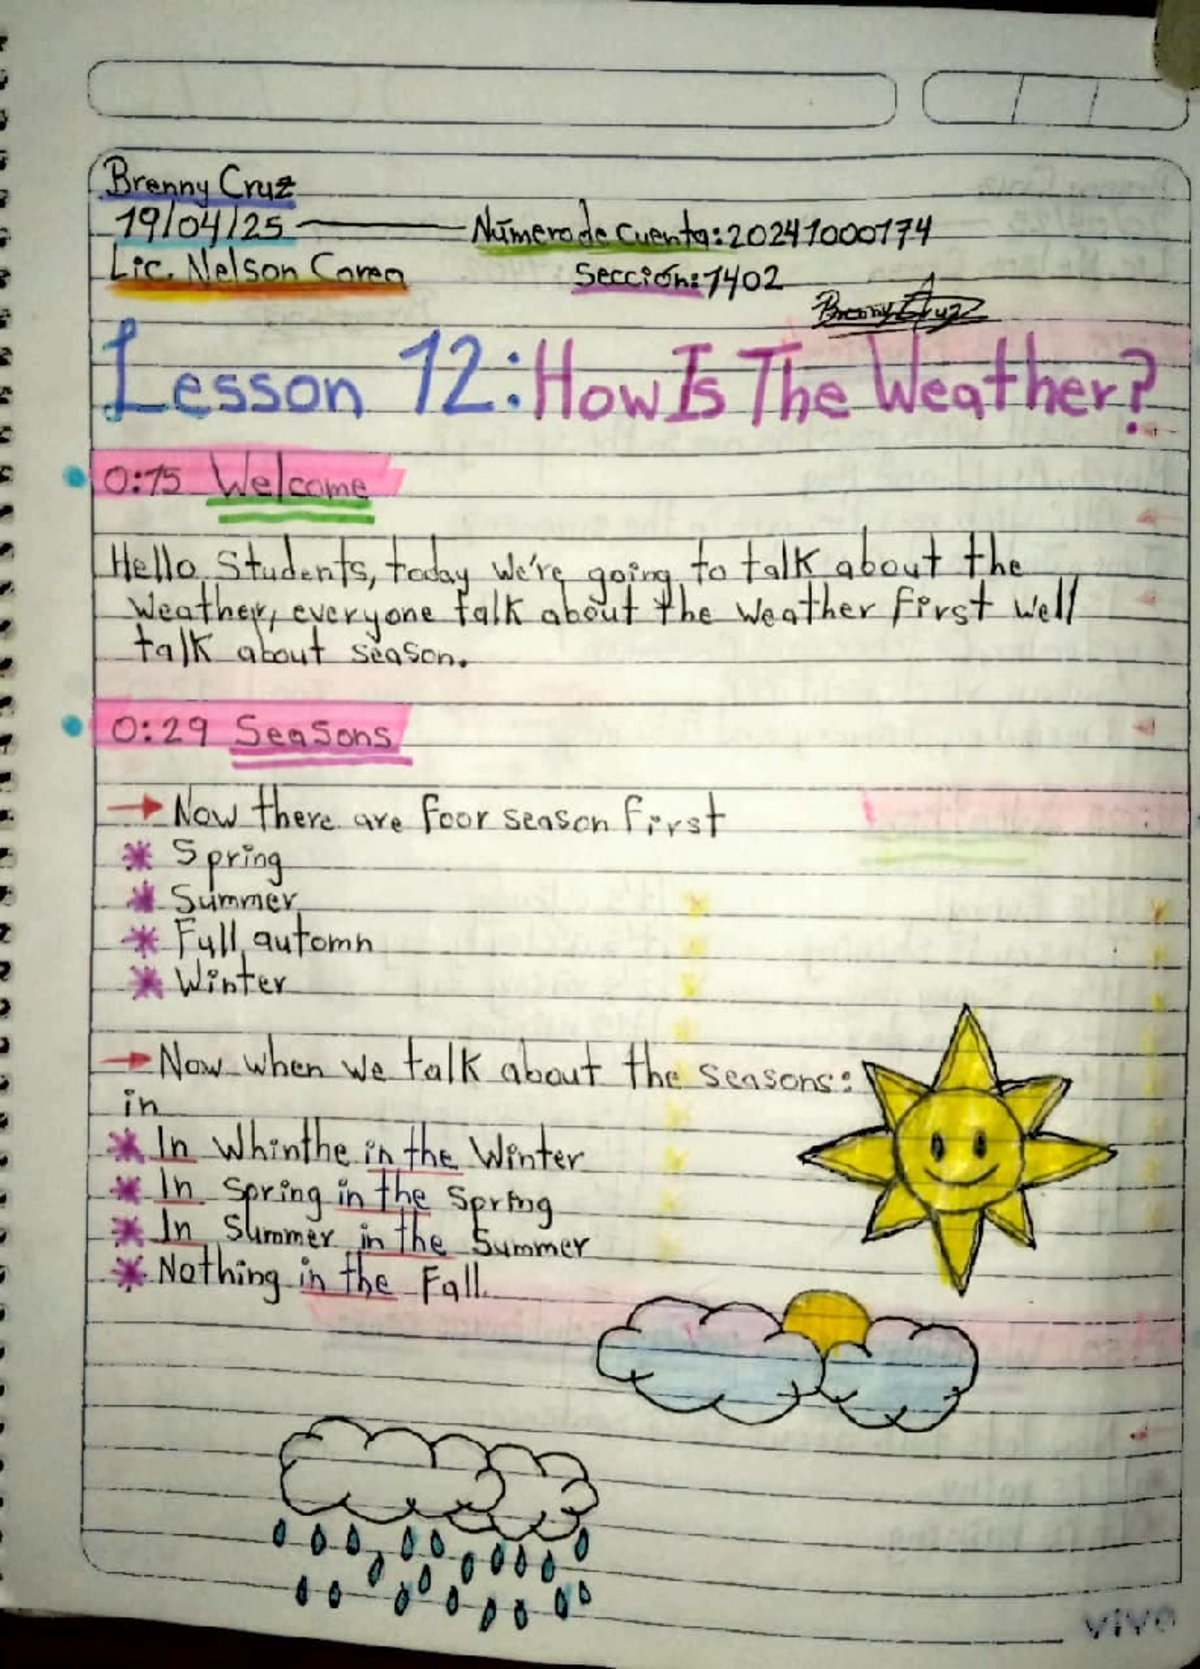 Brenny Cruz
19/04/25 Número de Cuenta: 20241000174
Lic. Nelson Corea Sección: 1402
Brenny Cruz
Lesson 12: How Is The Weather?
0:15 Welcome
Hello Students, today we're going to talk about the
Weather, everyone talk about the weather first well
talk about season.
0:29 Seasons
→ Now there are foor season first
* Spring
* Summer
* Full automn
* Winter
→ Now when we talk about the seasons:
in
* In Whinthe in the Winter
* In Spring in the Spring
* In Summer in the Summer
* Nothing in the Fall.
vivo